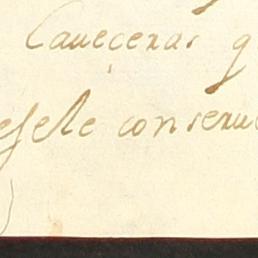 Caueceras q
esele conseru